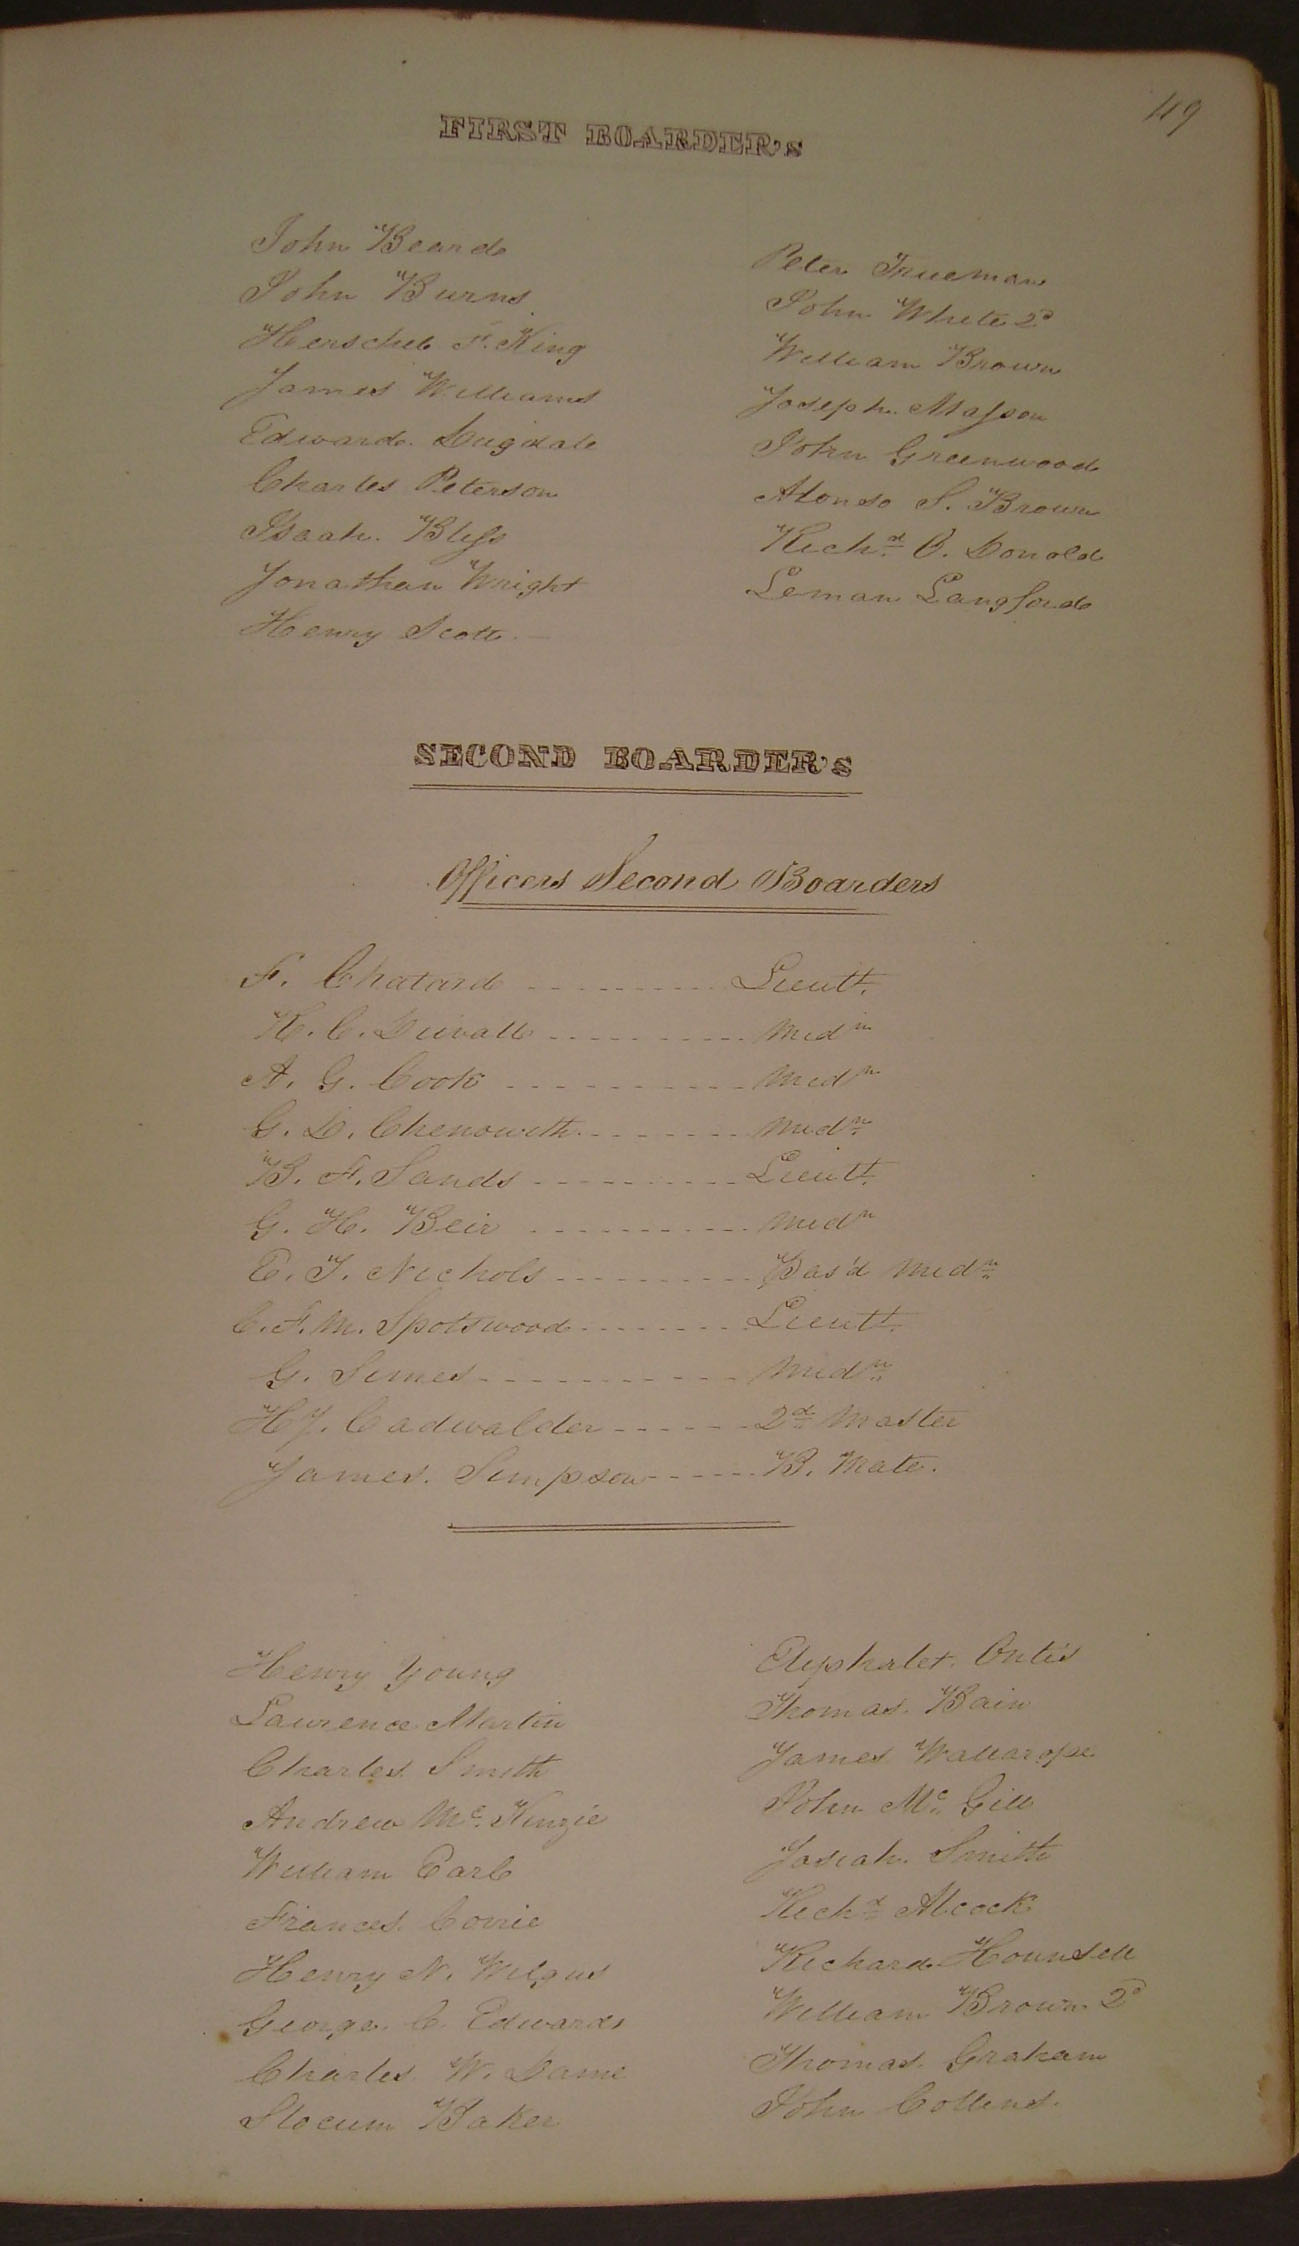 119
FIRST BOARDER's
John Beard
John Burns
Herschel F. King
James Williams
Edward Dugdale
Charles Peterson
Isaah. Bliss
Jonathan Wright
Henry Scott
Peter Trueman
John White 2d
William Brown
Joseph Masson
John Greenwood
Alonso S. Brown
Richd O. Donold
Leman Langford
SECOND BOARDER's
Officers Second Boarders
F. Chatard ---------- Lieutt.
R. C. Duvall ---------- Midn
A. G. Cook ---------- Midn
G. D. Chenowith ------- Midn
B. F. Sands ---------- Lieutt
G. H. Beir ---------- Midn
E. T. Nichols --------- Pas'd Midn
C. F. M. Spotswood ------- Lieutt.
G. Simes ---------- Midn
H J. Cadwalder ----- 2d Master
James. Simpson ----- B. Mate.
Henry Young
Laurence Martin
Charles Smith
Andrew Mc. Kinzie
William Earl
Frances Corrie
Henry N. Wilgus
George. C. Edwards
Charles W. Dame
Slocum Baker
Elyphalet. Ontis
Thomas. Bain
James Wallarope
John Mc. Gill
Josiah. Smith
Richd Alcock
Richard Hounsell
William Brown 2d
Thomas Graham
John Collins.